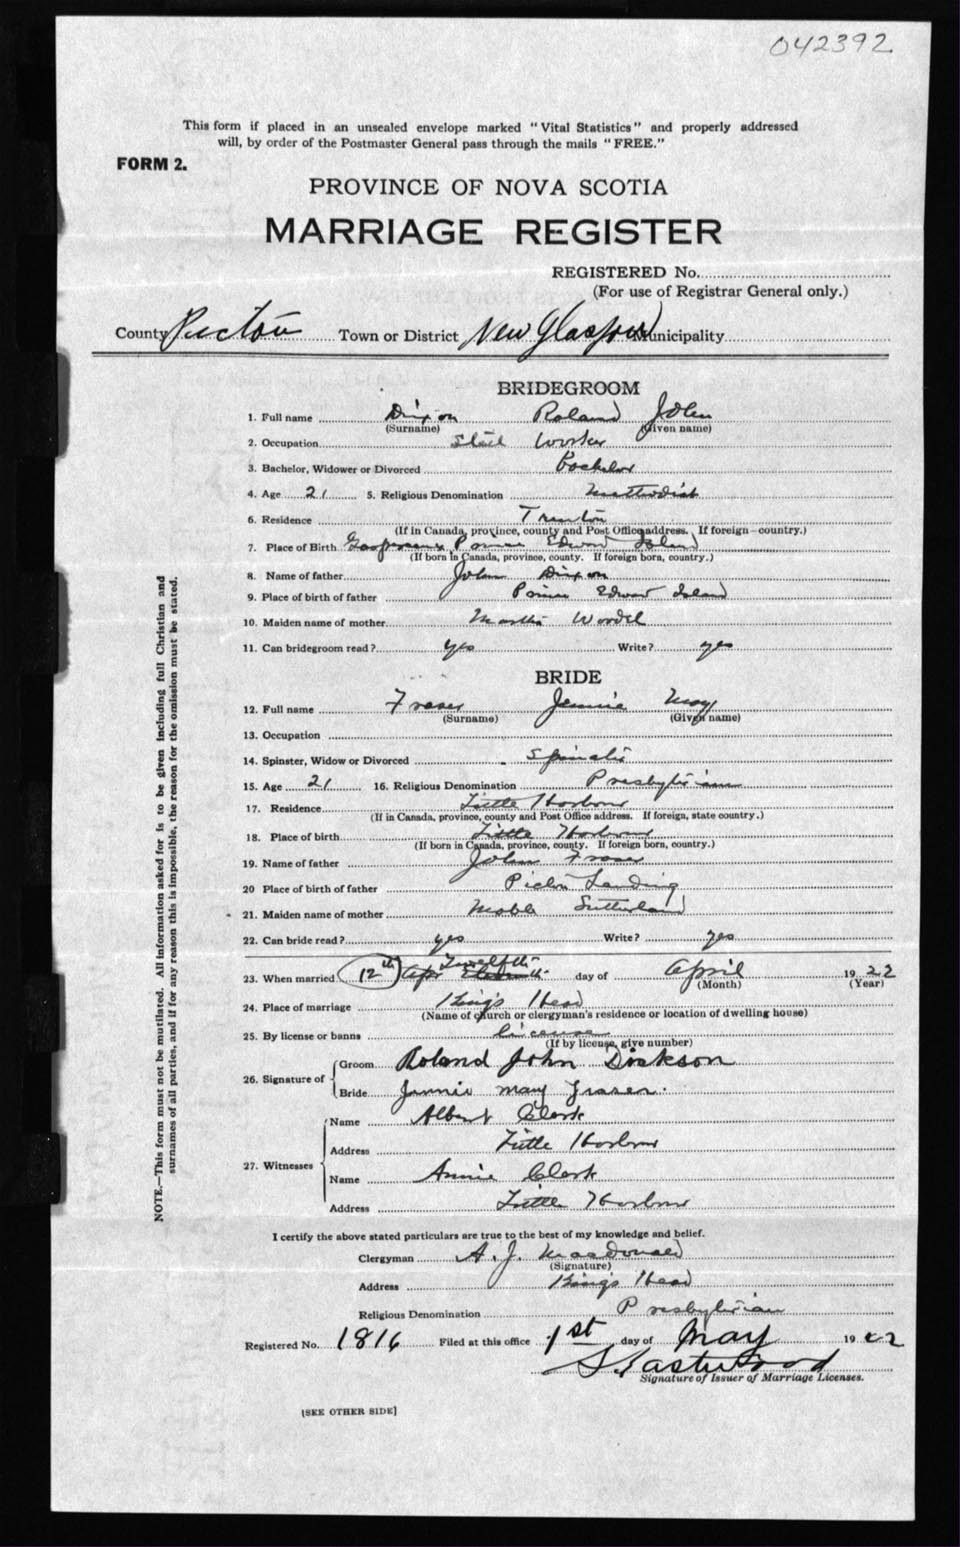 042392
This form if placed in an unsealed envelope marked "Vital Statistics" and properly addressed
will, by order of the Postmaster General pass through the mails "FREE."
FORM 2.
PROVINCE OF NOVA SCOTIA
MARRIAGE REGISTER
REGISTERED No.
(For use of Registrar General only.)
County Pictou Town or District New Glasgow Municipality
BRIDEGROOM
1. Full name Dixon Roland John
(Surname) (Given name)
2. Occupation Steel Worker
3. Bachelor, Widower or Divorced Bachelor
4. Age 21 5. Religious Denomination Methodist
6. Residence Trenton
(If in Canada, province, county and Post Office address. If foreign—country.)
7. Place of Birth Prince Edward Island
(If born in Canada, province, county. If foreign born, country.)
8. Name of father John Dixon
9. Place of birth of father Prince Edward Island
10. Maiden name of mother Martha
11. Can bridegroom read? yes Write? yes
BRIDE
12. Full name Fraser Jennie May
(Surname) (Given name)
13. Occupation
14. Spinster, Widow or Divorced Spinster
15. Age 21 16. Religious Denomination Presbyterian
17. Residence Little Harbour
(If in Canada, province, county and Post Office address. If foreign, state country.)
18. Place of birth Little Harbour
(If born in Canada, province, county. If foreign born, country.)
19. Name of father John Fraser
20 Place of birth of father Pictou Landing
21. Maiden name of mother Mabel Sutherland
22. Can bride read? yes Write? yes
23. When married 12th Apr Twelfth Eleventh day of April 1922
(Month) (Year)
24. Place of marriage King's Head
(Name of church or clergyman's residence or location of dwelling house)
25. By license or banns license
(If by license, give number)
26. Signature of Groom Roland John Dickson
Bride Jennie May Fraser.
27. Witnesses Name Albert Clark
Address Little Harbour
Name Annie Clark
Address Little Harbour
I certify the above stated particulars are true to the best of my knowledge and belief.
Clergyman A. J. Macdonald
(Signature)
Address King's Head
Religious Denomination Presbyterian
Registered No. 1816 Filed at this office 1st day of May 1922
Signature of Issuer of Marriage Licenses.
[SEE OTHER SIDE]
NOTE.—This form must not be mutilated. All information asked for is to be given including full Christian and
surnames of all parties, and if for any reason this is impossible, the reason for the omission must be stated.